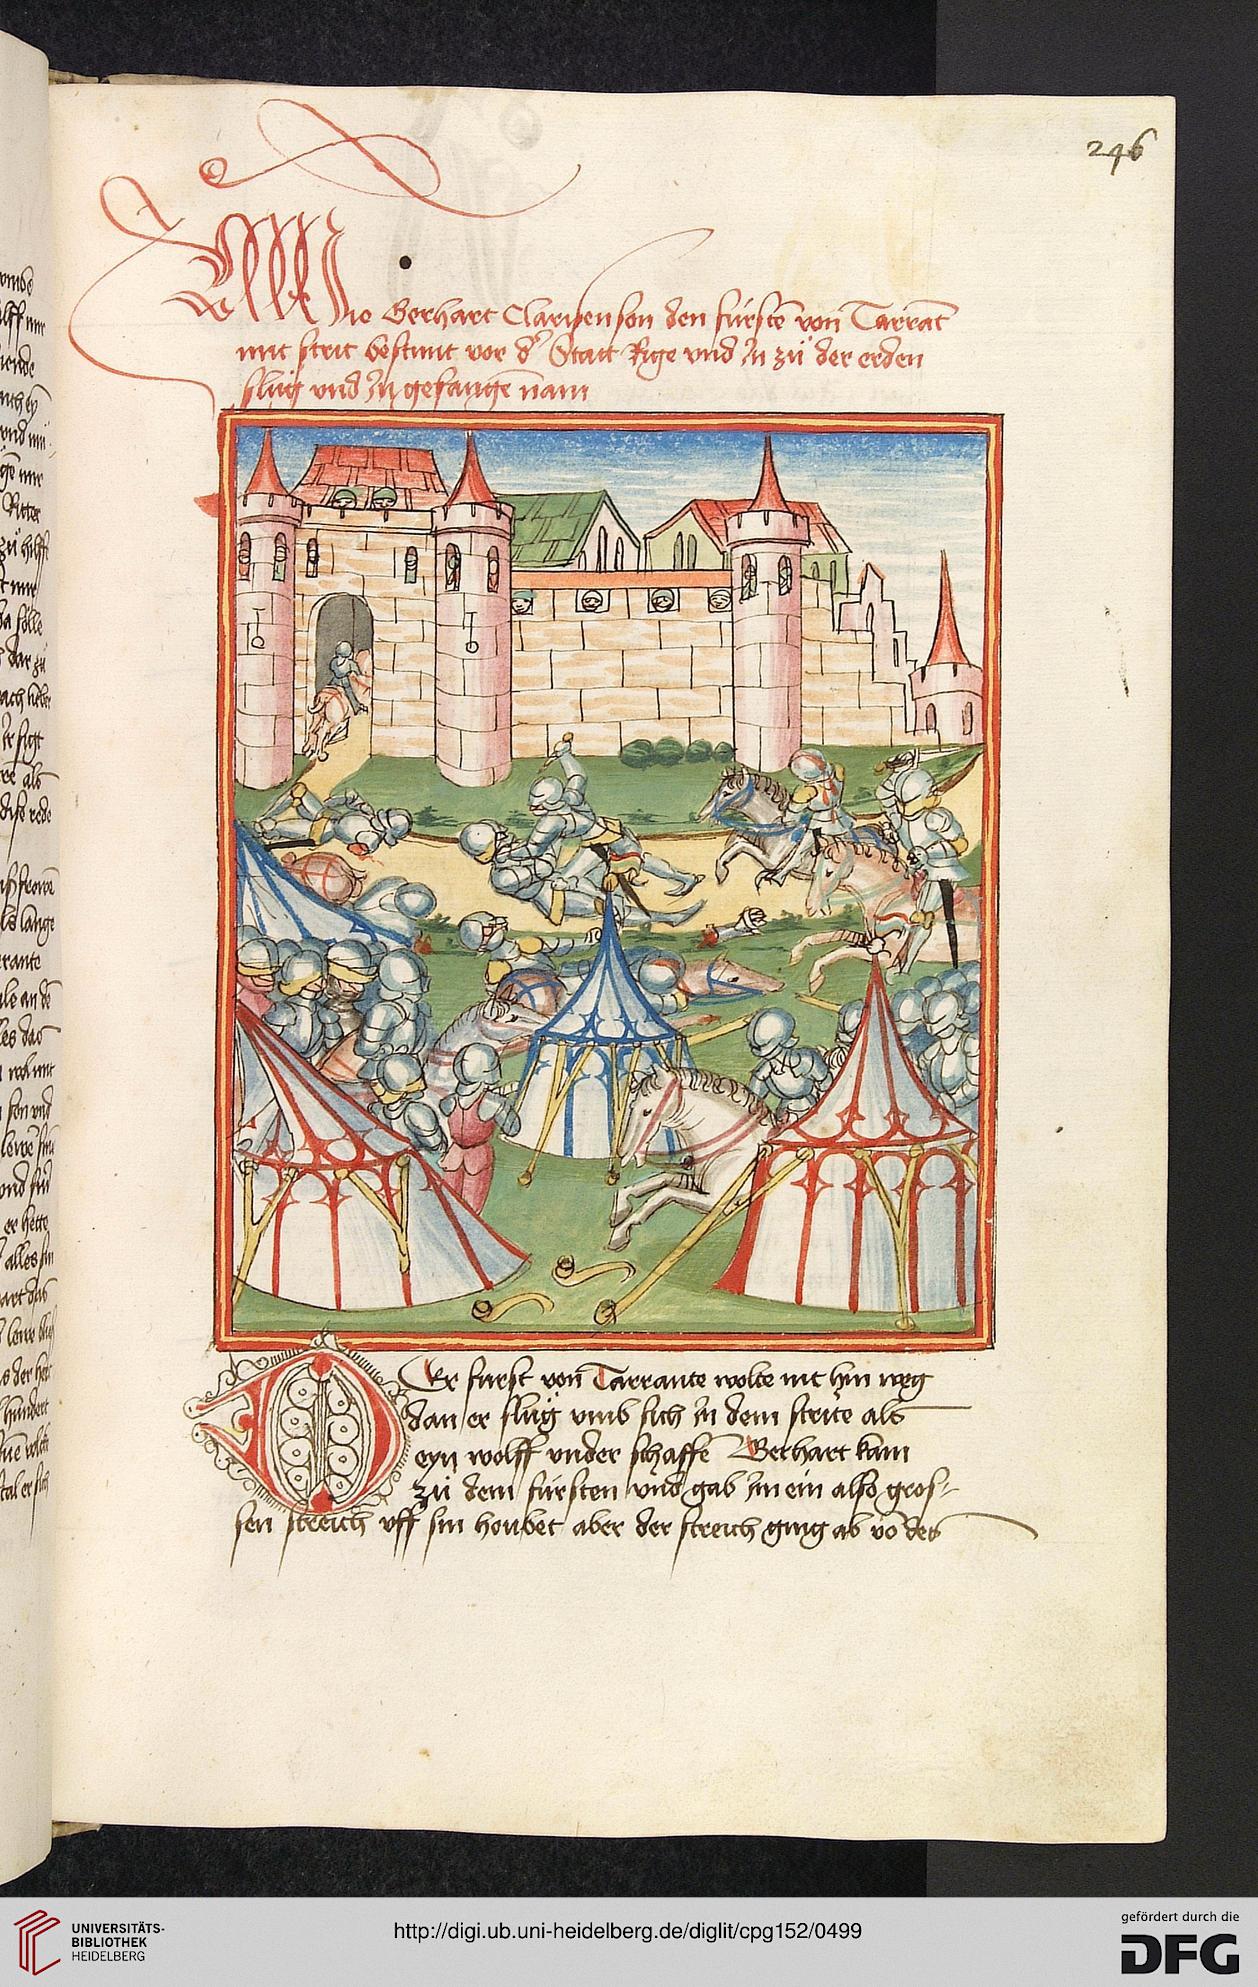 246
Wie Gerhart Claryen son den fúrstē von Tarrāt
mit strit bestunt vor dˀ Statt Rige vnd Jn zů der erden
slůg vnd Jn gefangē nam
DEr furst von Tarrante wolte nit hin weg
dan er slůg vmb sich Jn dem strite als
eyn wolff vnder schaffē Gerhart kam
zů dem fúrsten vnd gab Jm ein also gros-
sen streich vff sin houbet aber der streich ging ab vō des
UNIVERSITÄTS-
BIBLIOTHEK
HEIDELBERG
http://digi.ub.uni-heidelberg.de/diglit/cpg152/0499
gefördert durch die
DFG